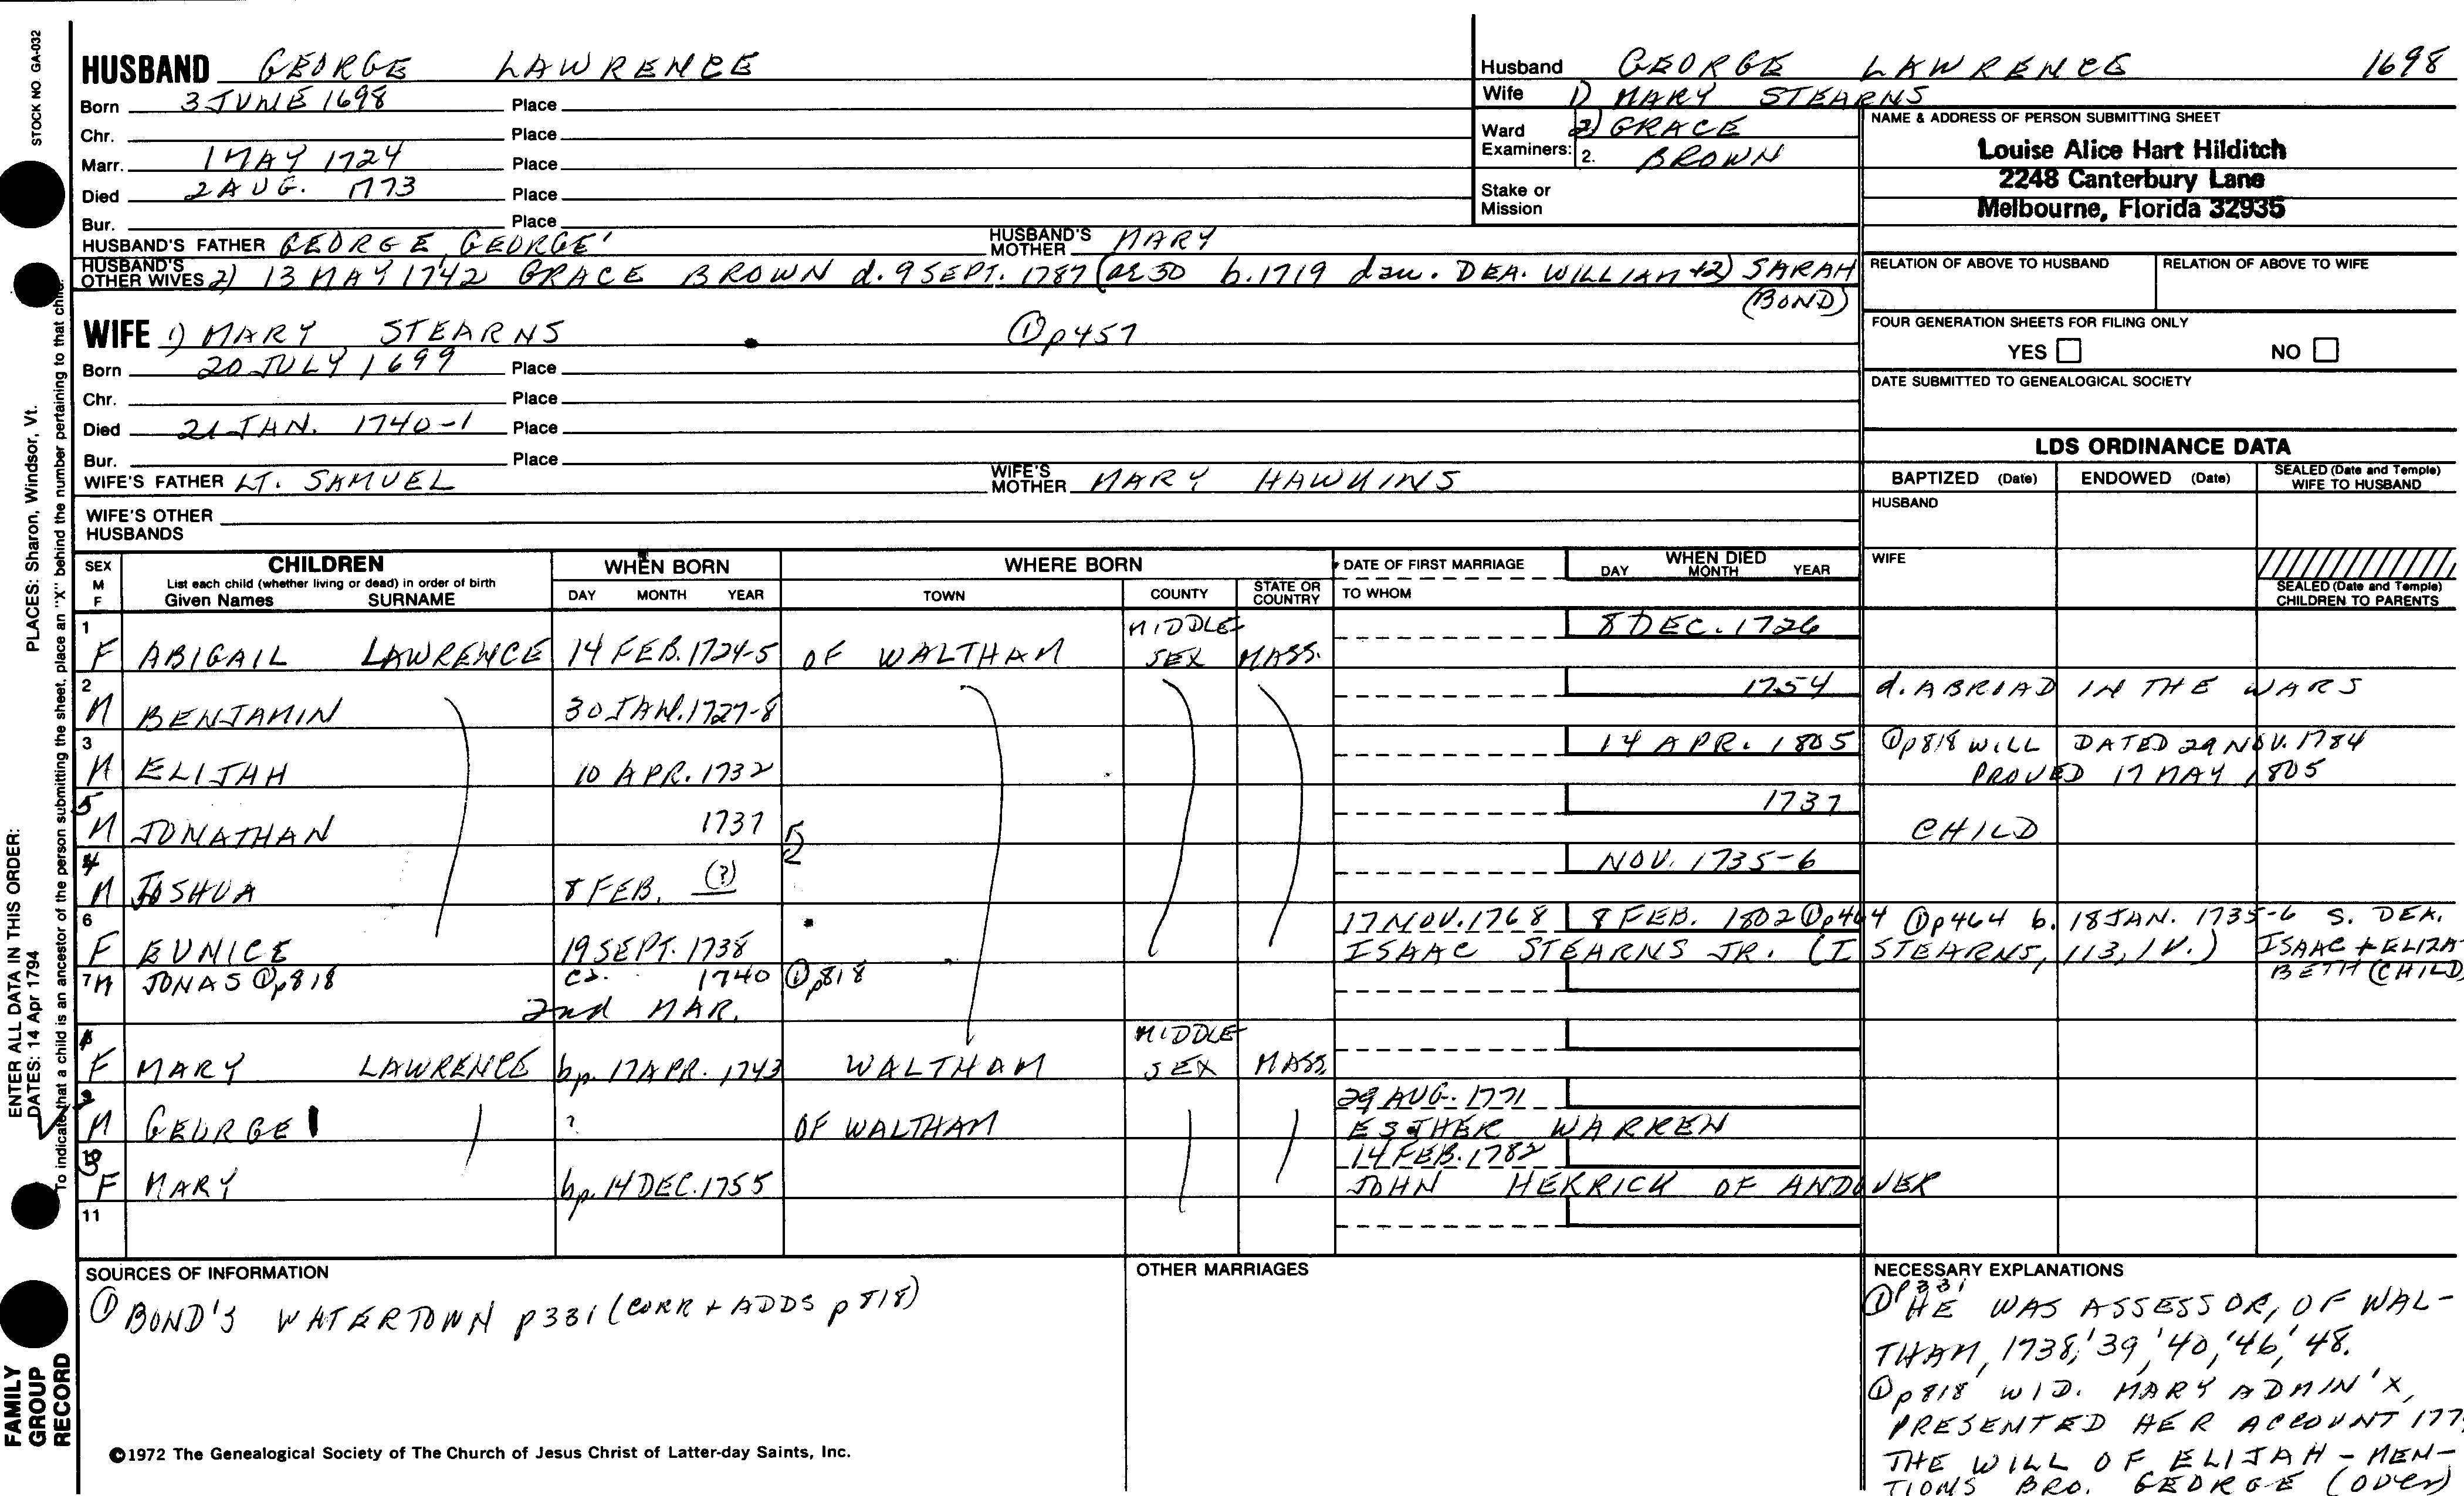 STOCK NO. GA-032
HUSBAND GEORGE LAWRENCE
Born 3 JUNE 1698 Place
Chr. Place
Marr. 1 MAY 1724 Place
Died 2 AUG. 1773 Place
Bur. Place
HUSBAND'S FATHER GEORGE, GEORGE' HUSBAND'S MOTHER MARY
HUSBAND'S OTHER WIVES 2) 13 MAY 1742 GRACE BROWN d. 9 SEPT. 1787 (ae 50 b. 1719 dau. DEA. WILLIAM +2) SARAH
(BOND)
WIFE 1) MARY STEARNS ① p 457
Born 20 JULY 1699 Place
Chr. Place
Died 21 JAN. 1740-1 Place
Bur. Place
WIFE'S FATHER LT. SAMUEL WIFE'S MOTHER MARY HAWKINS
WIFE'S OTHER HUSBANDS
Husband GEORGE LAWRENCE 1698
Wife 1) MARY STEARNS
Ward 2) GRACE
Examiners: 2. BROWN
Stake or Mission
NAME & ADDRESS OF PERSON SUBMITTING SHEET
Louise Alice Hart Hilditch
2248 Canterbury Lane
Melbourne, Florida 32935
RELATION OF ABOVE TO HUSBAND RELATION OF ABOVE TO WIFE
FOUR GENERATION SHEETS FOR FILING ONLY
YES NO
DATE SUBMITTED TO GENEALOGICAL SOCIETY
LDS ORDINANCE DATA
BAPTIZED (Date) ENDOWED (Date) SEALED (Date and Temple) WIFE TO HUSBAND
HUSBAND
WIFE
SEALED (Date and Temple) CHILDREN TO PARENTS
SEX M F CHILDREN List each child (whether living or dead) in order of birth Given Names SURNAME
WHEN BORN DAY MONTH YEAR
WHERE BORN TOWN COUNTY STATE OR COUNTRY
DATE OF FIRST MARRIAGE TO WHOM
WHEN DIED DAY MONTH YEAR
1 F ABIGAIL LAWRENCE 14 FEB. 1724-5 OF WALTHAM MIDDLESEX MASS. 8 DEC. 1726
2 M BENJAMIN 30 JAN. 1727-8 1754 d. ABRIAD IN THE WARS
3 M ELIJAH 10 APR. 1732 14 APR. 1805 ① p818 WILL DATED 29 NOV. 1784
PROVED 17 MAY 1805
5 M JONATHAN 1737 1737 CHILD
4 M JOSHUA 8 FEB. (?) NOV. 1735-6
6 F EUNICE 19 SEPT. 1738 17 NOV. 1768 8 FEB. 1802 ① p464 ① p464 b. 18 JAN. 1735-6 S. DEA.
ISAAC STEARNS JR. (I STEARNS, 113, IV.) ISAAC + ELIZABETH (CHILD)
7 M JONAS ① p818 ca. 1740 ① p818
2nd MAR.
F MARY LAWRENCE bp. 17 APR. 1743 WALTHAM MIDDLESEX MASS.
M GEORGE ? OF WALTHAM 29 AUG. 1771
ESTHER WARREN
F MARY bp. 14 DEC. 1755 14 FEB. 1782
JOHN HERRICK OF ANDOVER
11
SOURCES OF INFORMATION
① BOND'S WATERTOWN p331 (CORR + ADDS p 818)
OTHER MARRIAGES
NECESSARY EXPLANATIONS
① p331 HE WAS ASSESSOR, OF WAL-
THAM, 1738, '39, '40, '46, '48.
① p818 WID. MARY ADMIN'X,
PRESENTED HER ACCOUNT
THE WILL OF ELIJAH - MEN-
TIONS BRO. GEORGE (OVER)
©1972 The Genealogical Society of The Church of Jesus Christ of Latter-day Saints, Inc.
FAMILY GROUP RECORD
ENTER ALL DATA IN THIS ORDER:
DATES: 14 Apr 1794
PLACES: Sharon, Windsor, Vt.
To indicate that a child is an ancestor of the person submitting the sheet, place an "X" behind the number pertaining to that child.